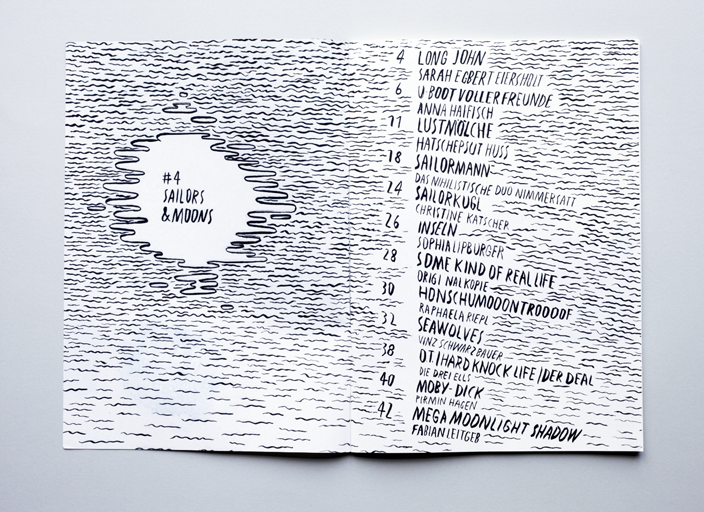 #4
SAILORS
& MOONS
4 LONG JOHN
SARAH EGBERT EIERSHOLT
6 U BOOT VOLLER FREUNDE
ANNA HAIFISCH
11 LUSTMOLCHE
HATSCHEPSUT HUSS
18 SAILORMANN
DAS NIHILISTISCHE DUO NIMMERSATT
24 SAILORKUGL
CHRISTINE KATSCHER
26 INSELN
SOPHIA LIPBURGER
28 SOME KIND OF REAL LIFE
ORIGI NALKOPIE
30 HONSCHUMOOONTROOOOF
RAPHAELA RIEPL
32 SEAWOLVES
VINZ SCHWARZBAUER
38 OT | HARD KNOCK LIFE | DER DEAL
DIE DREI ELLS
40 MOBY-DICK
PIRMIN HAGEN
42 MEGA MOONLIGHT SHADOW
FABIAN LEITGEB